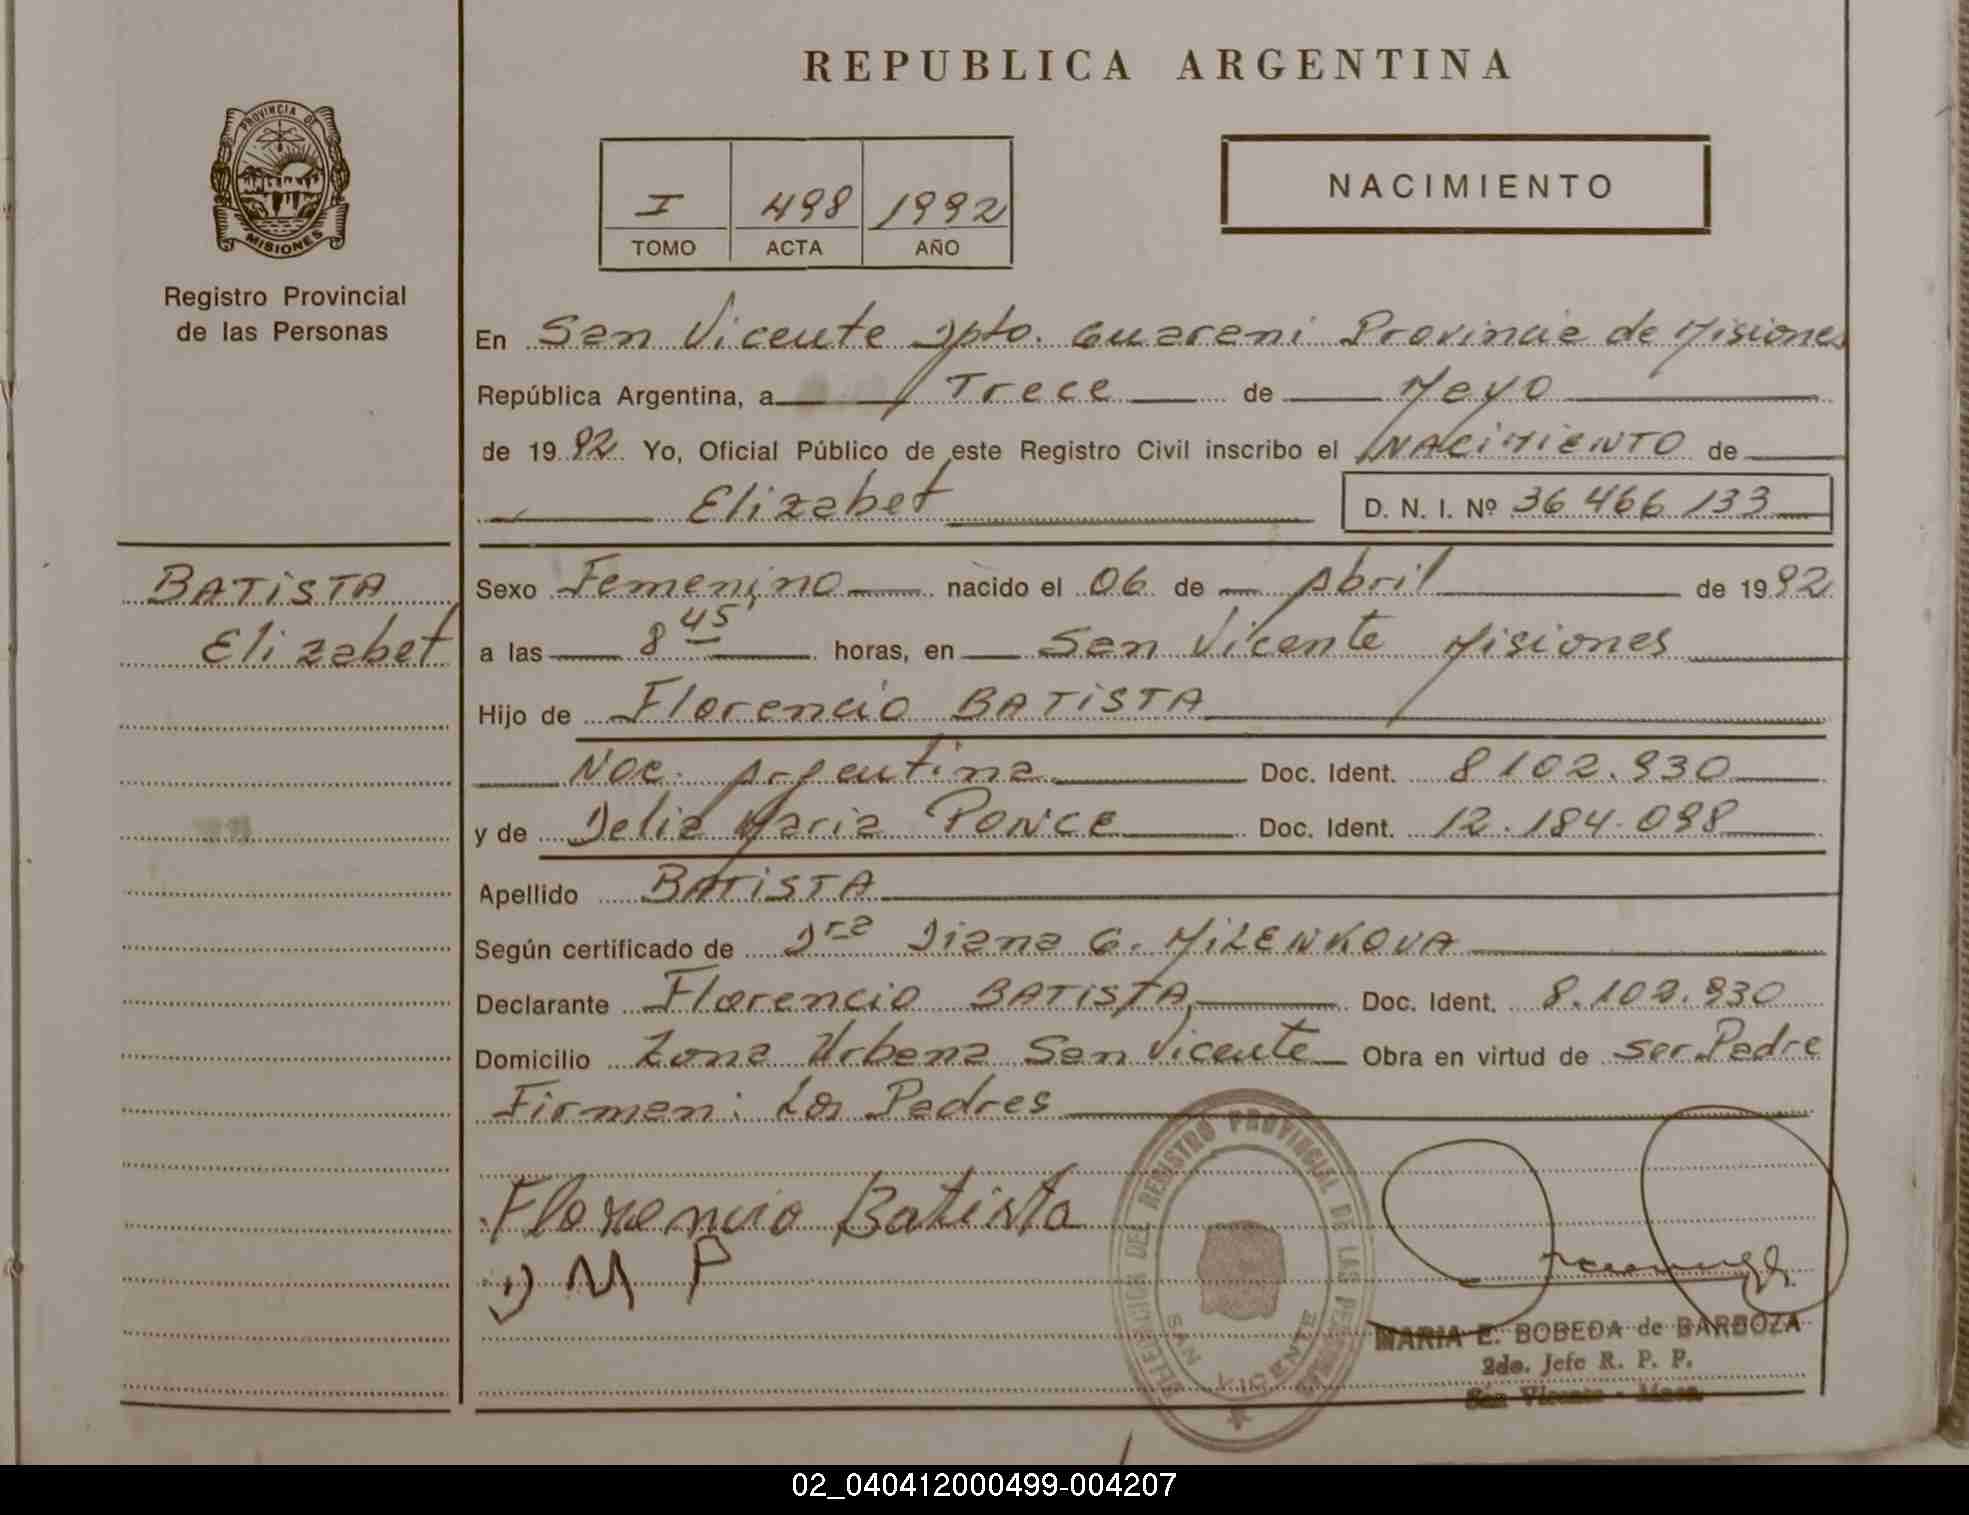 REPUBLICA ARGENTINA
PROVINCIA DE
MISIONES
Registro Provincial
de las Personas
I 498 1992
TOMO ACTA AÑO
NACIMIENTO
En San Vicente Dpto. Guarani Provincia de Misiones
República Argentina, a Trece de Mayo
de 19 92 Yo, Oficial Público de este Registro Civil inscribo el NACIMIENTO de
Elizabet D. N. I. Nº 36 466 133
BATISTA
Elizabet
Sexo Femenino nacido el 06 de Abril de 19 92
a las 8 45 horas, en San Vicente Misiones
Hijo de Florencio BATISTA
Nac. Argentina Doc. Ident. 8102.930
y de Delia Maria PONCE Doc. Ident. 12.184.098
Apellido BATISTA
Según certificado de Dra Diana G. MILENKOVA
Declarante Florencio BATISTA Doc. Ident. 8.102.930
Domicilio Zona Urbana San Vicente Obra en virtud de ser Padre
Firman: Los Padres
Florencio Batista
D M P
DEL REGISTRO PROVINCIAL DE LAS PERSONAS
SAN VICENTE
MARIA E. BOBEDA de BARBOZA
2do. Jefe R. P. P.
San Vicente - Mnes.
02_040412000499-004207